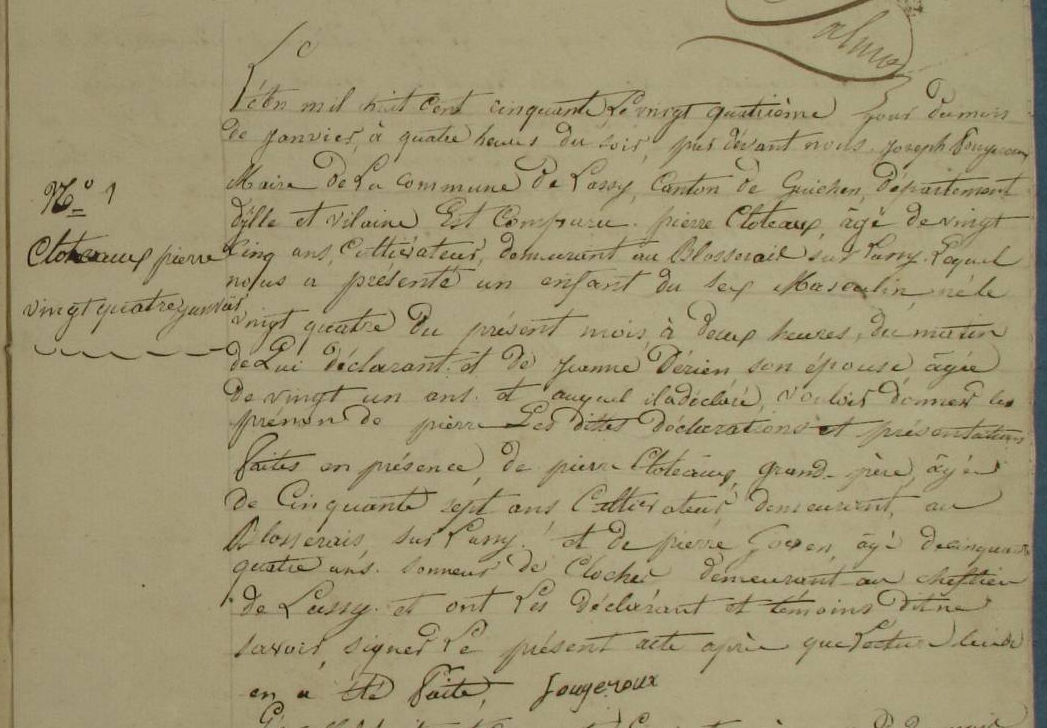 L'An mil huit cent cinquante Le vingt quatrième jour du mois
de Janvier, à quatre heures du soir, par devant nous Joseph Fougeroux
Maire De La commune De Lassy, Canton de Guichen, Département
d'ylle et vilaine Est Comparu pierre Cloteaux, âgé de vingt
N.° 1
Cloteaux pierre
vingt quatre janvier
Cinq ans, Cultivateur, demeurant au Blosserais sur Lassy. Lequel
nous a présenté un enfant du sex Masculin, né le
vingt quatre du présent mois, à deux heures, du matin
de Lui déclarant et de Jeanne Dérien son épouse âgée
De vingt un ans. et auquel il a déclaré, vouloir donner les
prénon de pierre Les dittes déclarations et présentations
faites en présence, de pierre Cloteaux, grand-père, âgé
de Cinquante sept ans Cultivateur demeurant, au
Blosserais, sur Lassy. et de pierre, âgé de cinquante
quatre ans. sonneur de Cloches demeurant au
de Lassy. et ont Les déclarant et témoins dit ne
savoir signer Le présent acte après que Lecture leur
en a été faite, Fougeroux